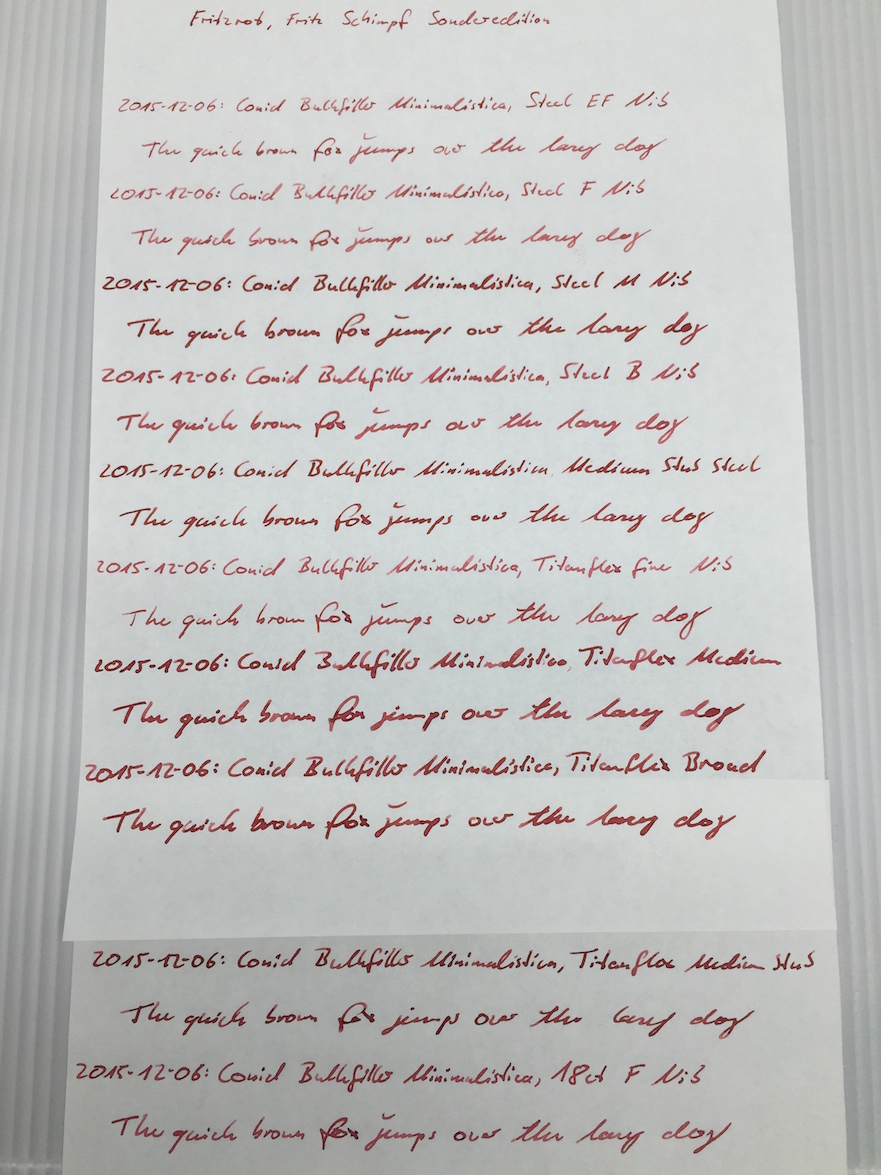 Fritzrot, Fritz Schimpf Sonderedition
2015-12-06: Conid Bulkfiller Minimalistica, Steel EF Nib
The quick brown fox jumps over the lazy dog
2015-12-06: Conid Bulkfiller Minimalistica, Steel F Nib
The quick brown fox jumps over the lazy dog
2015-12-06: Conid Bulkfiller Minimalistica, Steel M Nib
The quick brown fox jumps over the lazy dog
2015-12-06: Conid Bulkfiller Minimalistica, Steel B Nib
The quick brown fox jumps over the lazy dog
2015-12-06: Conid Bulkfiller Minimalistica, Medium Stub Steel
The quick brown fox jumps over the lazy dog
2015-12-06: Conid Bulkfiller Minimalistica, Titanflex fine Nib
The quick brown fox jumps over the lazy dog
2015-12-06: Conid Bulkfiller Minimalistica, Titanflex Medium
The quick brown fox jumps over the lazy dog
2015-12-06: Conid Bulkfiller Minimalistica, Titanflex Broad
The quick brown fox jumps over the lazy dog
2015-12-06: Conid Bulkfiller Minimalistica, Titanflex Medium Stub
The quick brown fox jumps over the lazy dog
2015-12-06: Conid Bulkfiller Minimalistica, 18ct F Nib
The quick brown fox jumps over the lazy dog